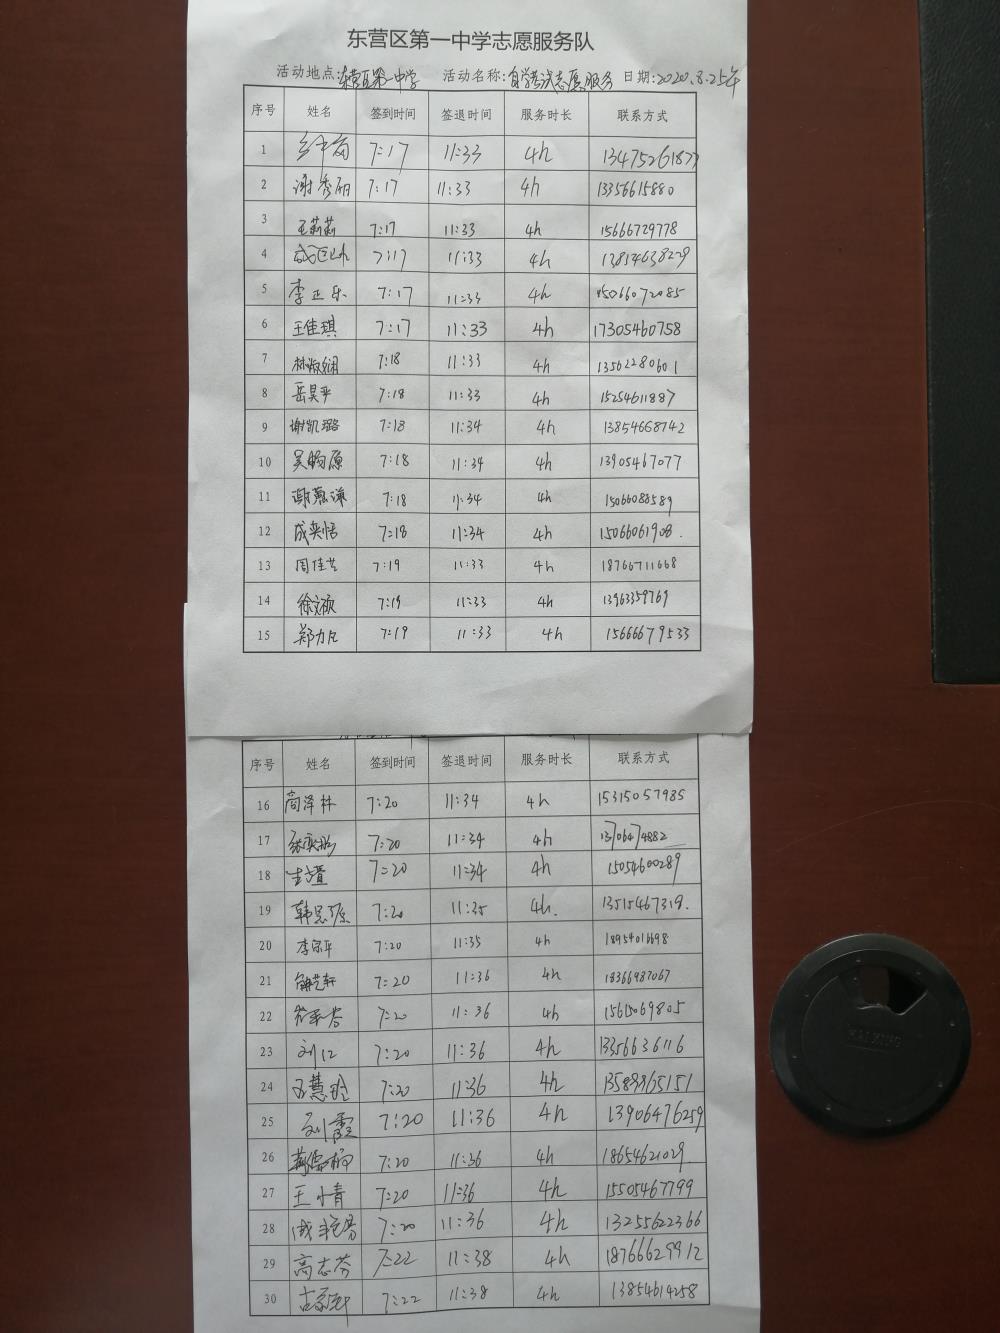 东营区第一中学志愿服务队
活动地点:东营区第一中学 活动名称:自学考试志愿服务 日期:2020.8.25年
序号 姓名 签到时间 签退时间 服务时长 联系方式
1 7:17 11:33 4h
2 谢秀丽 7:17 11:33 4h 13356615880
3 王莉莉 7:17 11:33 4h 15666729778
4 7:17 11:33 4h 13814638229
5 李正乐 7:17 11:33 4h 15066072085
6 王佳琪 7:17 11:33 4h 17305460758
7 林淑娴 7:18 11:33 4h 13562280601
8 岳昊平 7:18 11:33 4h 15254611887
9 谢凯璐 7:18 11:34 4h 13854668742
10 吴昀原 7:18 11:34 4h 13905467077
11 7:18 11:34 4h 15066086589
12 成奕恬 7:18 11:34 4h 15066061908.
13 周佳艺 7:19 11:33 4h 18766711668
14 徐文硕 7:19 11:33 4h 13963359769
15 郑力凡 7:19 11:33 4h 15666679533
序号 姓名 签到时间 签退时间 服务时长 联系方式
16 苘泽林 7:20 11:34 4h 15315057985
17 7:20 11:34 4h 13706474882
18 7:20 11:34 4h 15054600289
19 韩思源 7:20 11:35 4h. 13515467319.
20 李宗平 7:20 11:35 4h 18954016698
21 7:20 11:36 4h 18366987067
22 7:20 11:36 4h 15615069805
23 刘仁 7:20 11:36 4h 13356636116
24 王慧玲 7:20 11:36 4h 13589965151
25 刘霞 7:20 11:36 4h 13906476259
26 7:20 11:36 4h 18654621029
27 王小青 7:20 11:36 4h 15505467799
28 7:20 11:36 4h 13255622366
29 高志芬 7:22 11:38 4h 18766629912
30 7:22 11:38 4h 13854614258
HAIXING